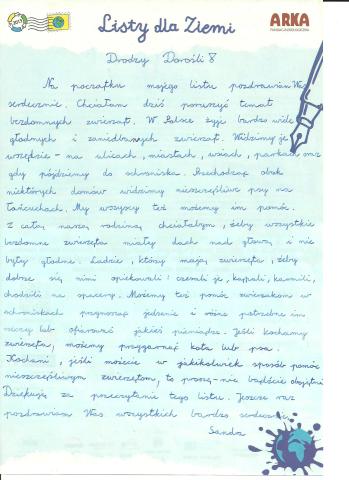 Listy dla Ziemi
ARKA
Drodzy Dorośli 8
Na początku mojego listu pozdrawiam Was
serdecznie. Chciałam dziś poruszyć temat
bezdomnych zwierząt. W Polsce żyje bardzo wiele
głodnych i zaniedbanych zwierząt. Widzimy je
wszędzie - na ulicach, miastach, wsiach, parkach oraz
gdy pójdziemy do schroniska. Przechodząc obok
niektórych domów widzimy nieszczęśliwe psy na
łańcuchach. My wszyscy też możemy im pomóc.
Z całą naszą rodziną chciałabym, żeby wszystkie
bezdomne zwierzęta miały dach nad głową i nie
były głodne. Ludzie, którzy mają zwierzęta, żeby
dobrze się nimi opiekowali: czesali je, kąpali, karmili,
chodzili na spacery. Możemy też pomóc zwierzakom w
schroniskach przynosząc jedzenie i różne potrzebne im
rzeczy lub ofiarować jakieś pieniądze. Jeśli kochamy
zwierzęta, możemy przygarnąć kota lub psa.
Kochani, jeśli możecie w jakikolwiek sposób pomóc
nieszczęśliwym zwierzętom, to proszę - nie bądźcie obojętni
Dziękuję za przeczytanie tego listu. Jeszcze raz
pozdrawiam Was wszystkich bardzo serdecznie.
Sandra